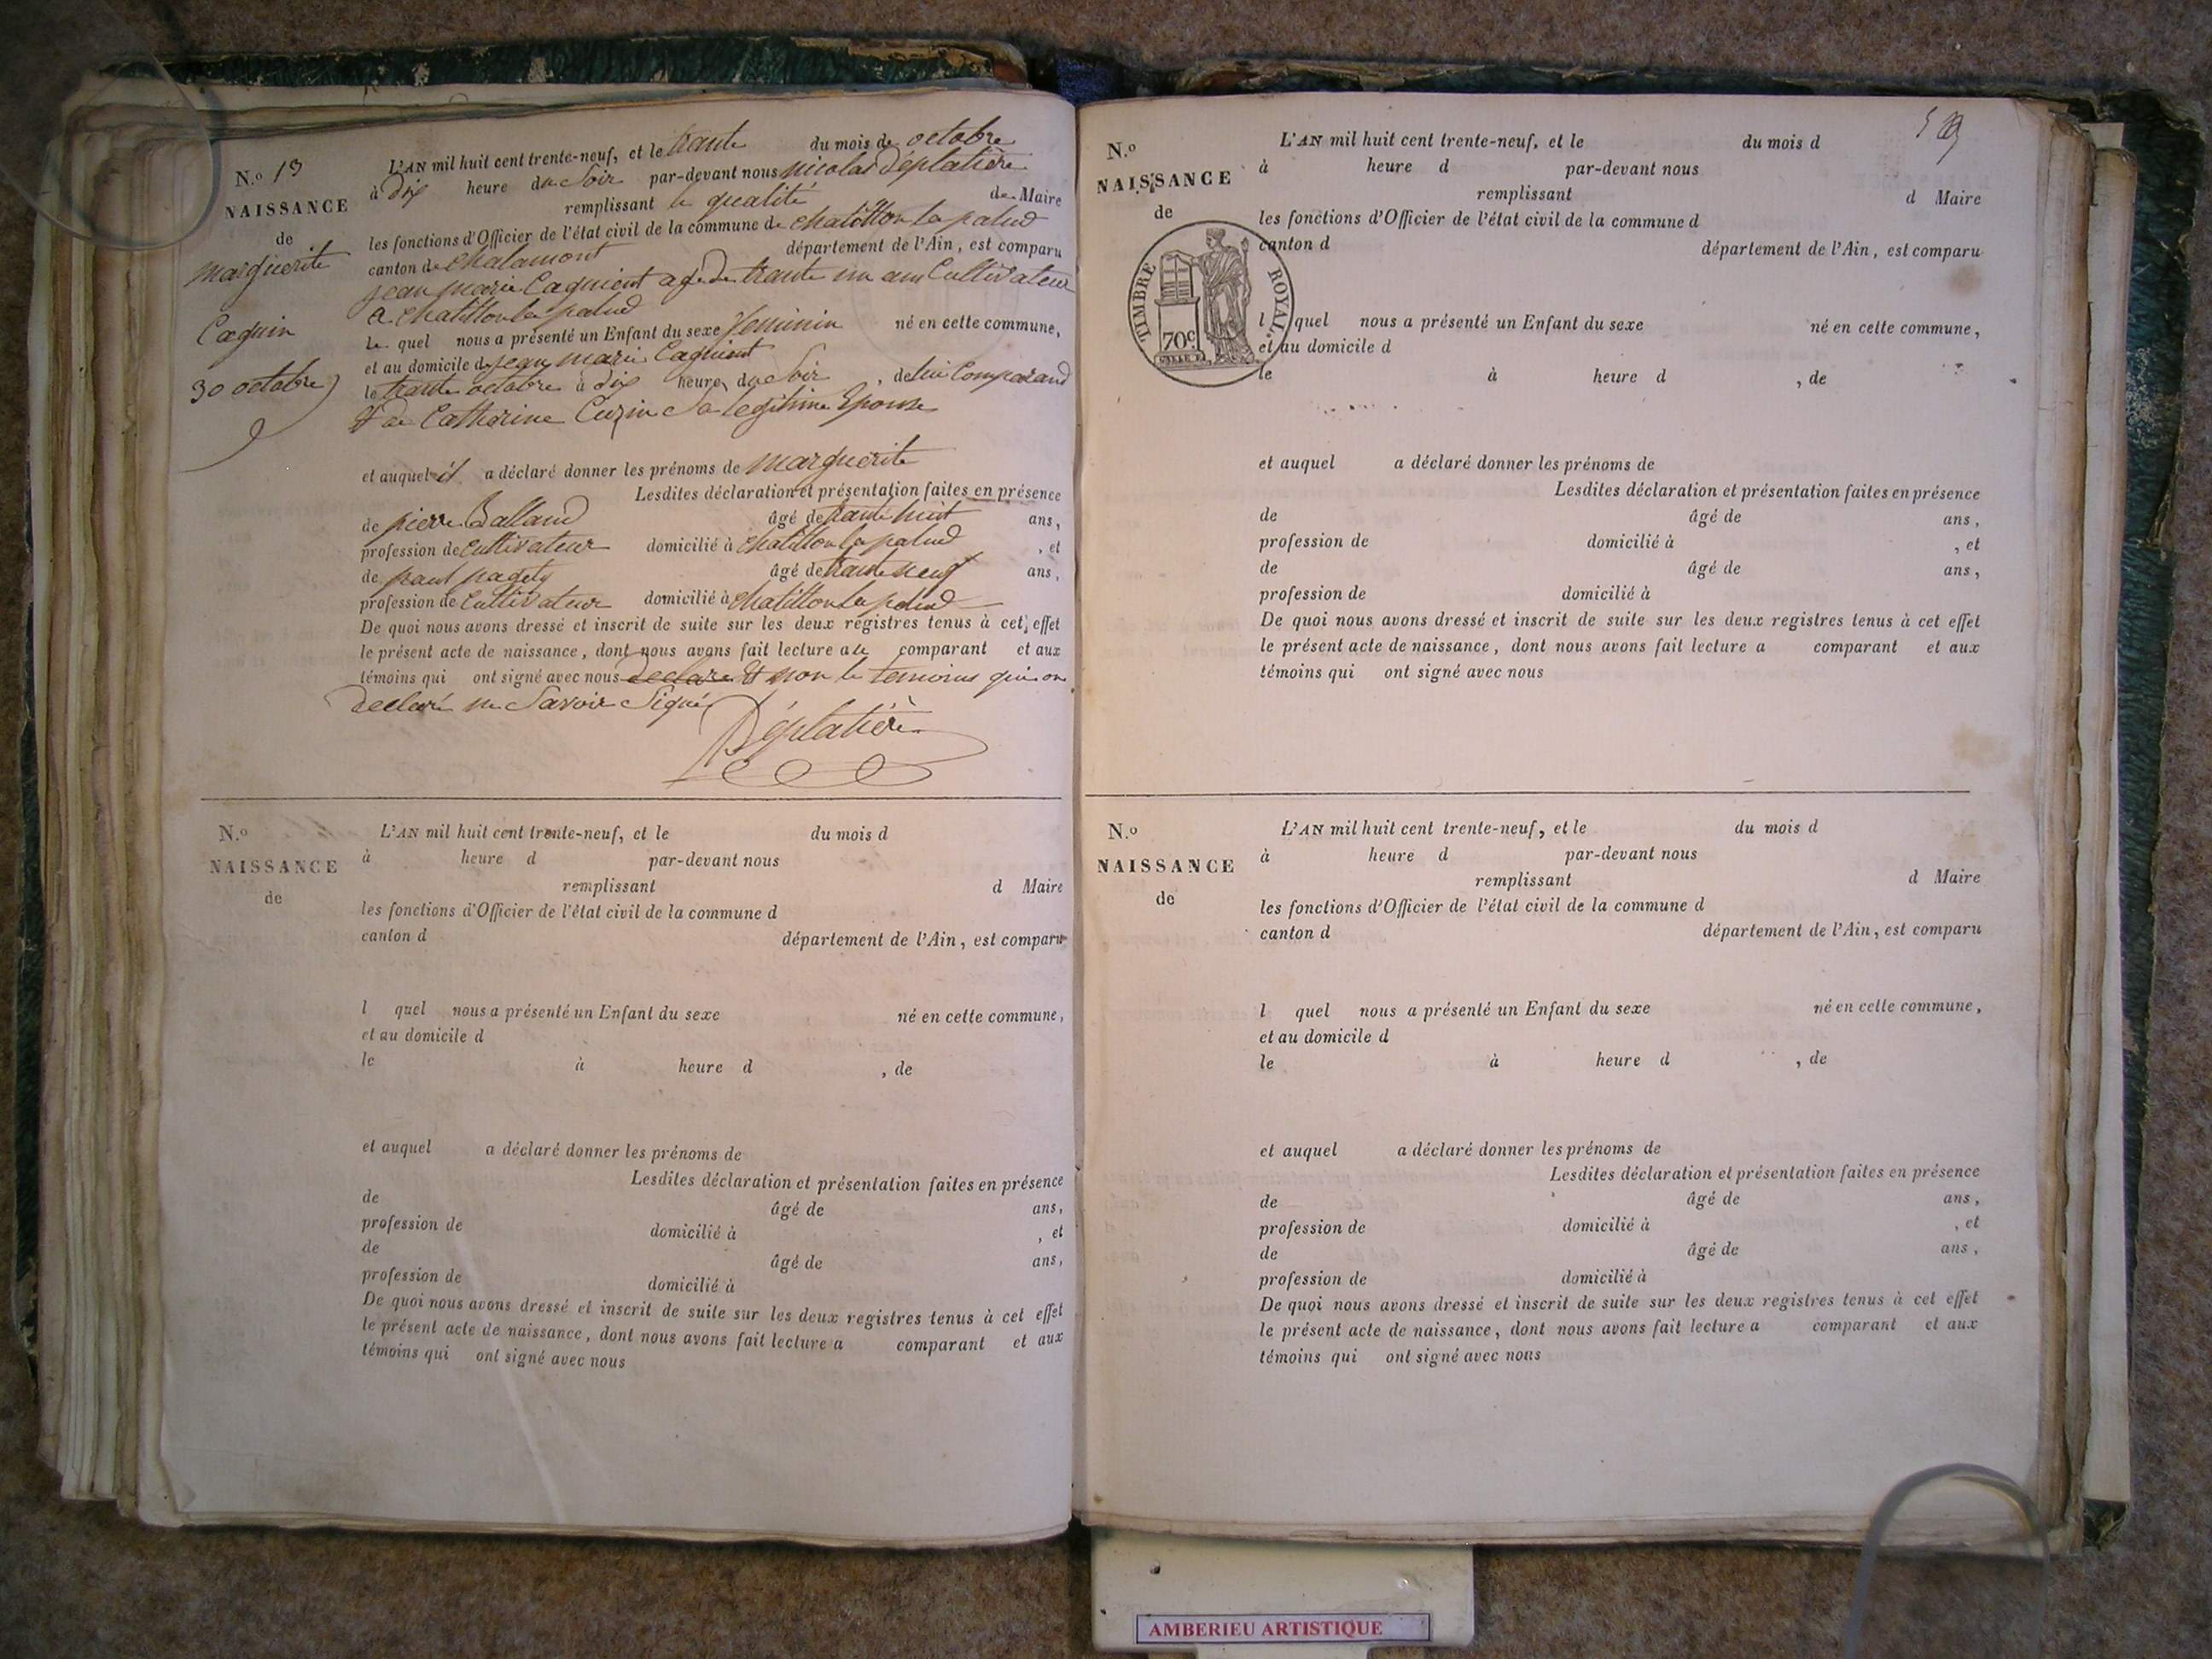 N.o 13
NAISSANCE
de
marguerite
Caquin
30 octobre
L'AN mil huit cent trente-neuf, et le trante du mois de octobre
à dix heure du Soir par-devant nous nicolas Déplatière
remplissant la qualité de Maire
les fonctions d'Officier de l'état civil de la commune de chatillon la palud
canton de chalamont département de l'Ain, est comparu
jean marie Caquient agé de trante un ans Cultivateur
a chatillon la palud
le quel nous a présenté un Enfant du sexe feminin né en cette commune,
et au domicile de jean marie Caquient
le trante octobre à dix heure du Soir, de lui Comparand
et de Catherine Cuzin Sa legitime Epouse
et auquel il a déclaré donner les prénoms de marguerite
Lesdites déclaration et présentation faites en présence
de pierre Balland âgé de trante huit ans,
profession de Cultivateur domicilié à chatillon la palud, et
de paul âgé de trante neuf ans,
profession de Cultivateur domicilié à chatillon la palud
De quoi nous avons dressé et inscrit de suite sur les deux registres tenus à cet effet
le présent acte de naissance, dont nous avons fait lecture a le comparant et aux
témoins qui ont signé avec nous declare et non le temoins qui on
declaré ne Savoir Signé
Déplatière
N.o
NAISSANCE
de
L'AN mil huit cent trente-neuf, et le du mois d
à heure d par-devant nous
remplissant d Maire
les fonctions d'Officier de l'état civil de la commune d
canton d département de l'Ain, est comparu
l quel nous a présenté un Enfant du sexe né en cette commune,
et au domicile d
le à heure d , de
et auquel a déclaré donner les prénoms de
Lesdites déclaration et présentation faites en présence
de âgé de ans,
profession de domicilié à , et
de âgé de ans,
profession de domicilié à
De quoi nous avons dressé et inscrit de suite sur les deux registres tenus à cet effet
le présent acte de naissance, dont nous avons fait lecture a comparant et aux
témoins qui ont signé avec nous
N.o
NAISSANCE
de
TIMBRE ROYAL
70c
L'AN mil huit cent trente-neuf, et le du mois d
à heure d par-devant nous
remplissant d Maire
les fonctions d'Officier de l'état civil de la commune d
canton d département de l'Ain, est comparu
l quel nous a présenté un Enfant du sexe né en cette commune,
et au domicile d
le à heure d , de
et auquel a déclaré donner les prénoms de
Lesdites déclaration et présentation faites en présence
de âgé de ans,
profession de domicilié à , et
de âgé de ans,
profession de domicilié à
De quoi nous avons dressé et inscrit de suite sur les deux registres tenus à cet effet
le présent acte de naissance, dont nous avons fait lecture a comparant et aux
témoins qui ont signé avec nous
N.o
NAISSANCE
de
L'AN mil huit cent trente-neuf, et le du mois d
à heure d par-devant nous
remplissant d Maire
les fonctions d'Officier de l'état civil de la commune d
canton d département de l'Ain, est comparu
l quel nous a présenté un Enfant du sexe né en cette commune,
et au domicile d
le à heure d , de
et auquel a déclaré donner les prénoms de
Lesdites déclaration et présentation faites en présence
de âgé de ans,
profession de domicilié à , et
de âgé de ans,
profession de domicilié à
De quoi nous avons dressé et inscrit de suite sur les deux registres tenus à cet effet
le présent acte de naissance, dont nous avons fait lecture a comparant et aux
témoins qui ont signé avec nous
AMBERIEU ARTISTIQUE